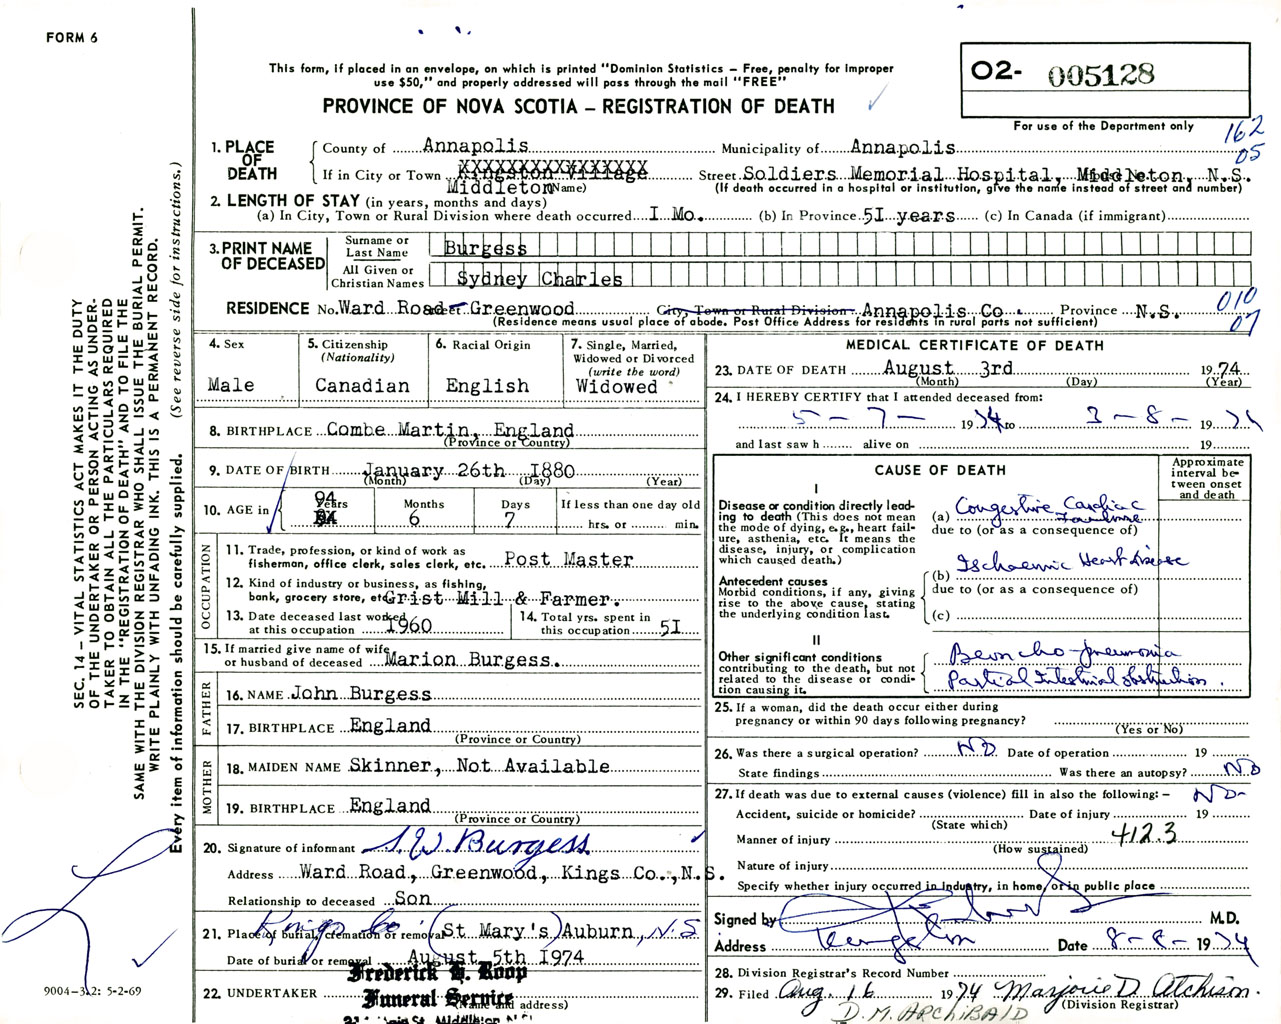 FORM 6
This form, if placed in an envelope, on which is printed "Dominion Statistics – Free, penalty for improper
use $50," and properly addressed will pass through the mail "FREE"
O2- 005128
PROVINCE OF NOVA SCOTIA – REGISTRATION OF DEATH
For use of the Department only
162
05
1. PLACE OF DEATH
County of Annapolis Municipality of Annapolis
If in City or Town XXXXXXXXXXXXXXXX Street Soldiers Memorial Hospital, Middleton, N.S.
Middleton (Name) (If death occurred in a hospital or institution, give the name instead of street and number)
2. LENGTH OF STAY (in years, months and days)
(a) In City, Town or Rural Division where death occurred I Mo. (b) In Province 5I years (c) In Canada (if immigrant)
3. PRINT NAME OF DECEASED
Surname or Last Name Burgess
All Given or Christian Names Sydney Charles
RESIDENCE No. Ward Road Greenwood City, Town or Rural Division Annapolis Co. Province N.S.
(Residence means usual place of abode. Post Office Address for residents in rural parts not sufficient)
010
07
4. Sex Male
5. Citizenship (Nationality) Canadian
6. Racial Origin English
7. Single, Married, Widowed or Divorced (write the word) Widowed
8. BIRTHPLACE Combe Martin, England
(Province or Country)
9. DATE OF BIRTH January 26th I880
(Month) (Day) (Year)
10. AGE in 94 Years Months 6 Days 7 If less than one day old
hrs. or min.
OCCUPATION
11. Trade, profession, or kind of work as
fisherman, office clerk, sales clerk, etc. Post Master
12. Kind of industry or business, as fishing,
bank, grocery store, etc. Grist Mill & Farmer.
13. Date deceased last worked
at this occupation I960
14. Total yrs. spent in
this occupation 5I
15. If married give name of wife
or husband of deceased Marion Burgess.
FATHER
16. NAME John Burgess
17. BIRTHPLACE England
(Province or Country)
MOTHER
18. MAIDEN NAME Skinner, Not Available
19. BIRTHPLACE England
(Province or Country)
20. Signature of informant S.W. Burgess
Address Ward Road, Greenwood, Kings Co., N.S.
Relationship to deceased Son
21. Place of burial, cremation or removal Kings Co (St Mary's) Auburn, N.S
Date of burial or removal August 5th I974
22. UNDERTAKER Frederick H. Roop
Funeral Service
(Name and address)
Main St. Middleton N.S.
MEDICAL CERTIFICATE OF DEATH
23. DATE OF DEATH August 3rd 1974
(Month) (Day) (Year)
24. I HEREBY CERTIFY that I attended deceased from:
5-7- 1974 to 3-8- 1974
and last saw h alive on 19
CAUSE OF DEATH
Approximate interval between onset and death
I
Disease or condition directly leading to death (This does not mean the mode of dying, e.g., heart failure, asthenia, etc. It means the disease, injury, or complication which caused death.)
(a) Congestive Cardiac Failure
due to (or as a consequence of)
Antecedent causes
Morbid conditions, if any, giving rise to the above cause, stating the underlying condition last.
(b) Ischaemic Heart Disease
due to (or as a consequence of)
(c)
II
Other significant conditions
contributing to the death, but not related to the disease or condition causing it.
Broncho-pneumonia
Partial Intestinal obstruction.
25. If a woman, did the death occur either during
pregnancy or within 90 days following pregnancy?
(Yes or No)
26. Was there a surgical operation? NO Date of operation 19
State findings Was there an autopsy? NO
27. If death was due to external causes (violence) fill in also the following: – NO-
Accident, suicide or homicide? Date of injury 19
(State which)
Manner of injury 412.3
(How sustained)
Nature of injury
Specify whether injury occurred in Industry, in home, or in public place
Signed by M.D.
Address Kingston Date 8-8-1974
28. Division Registrar's Record Number
29. Filed Aug. 16 1974 Marjorie D. Atchison.
(Division Registrar)
D.M. ARCHIBALD
SEC. 14 – VITAL STATISTICS ACT MAKES IT THE DUTY
OF THE UNDERTAKER OR PERSON ACTING AS UNDER-
TAKER TO OBTAIN ALL THE PARTICULARS REQUIRED
IN THE "REGISTRATION OF DEATH" AND TO FILE THE
SAME WITH THE DIVISION REGISTRAR WHO SHALL ISSUE THE BURIAL PERMIT.
WRITE PLAINLY WITH UNFADING INK. THIS IS A PERMANENT RECORD.
Every item of information should be carefully supplied. (See reverse side for instructions.)
9004-3.2: 5-2-69